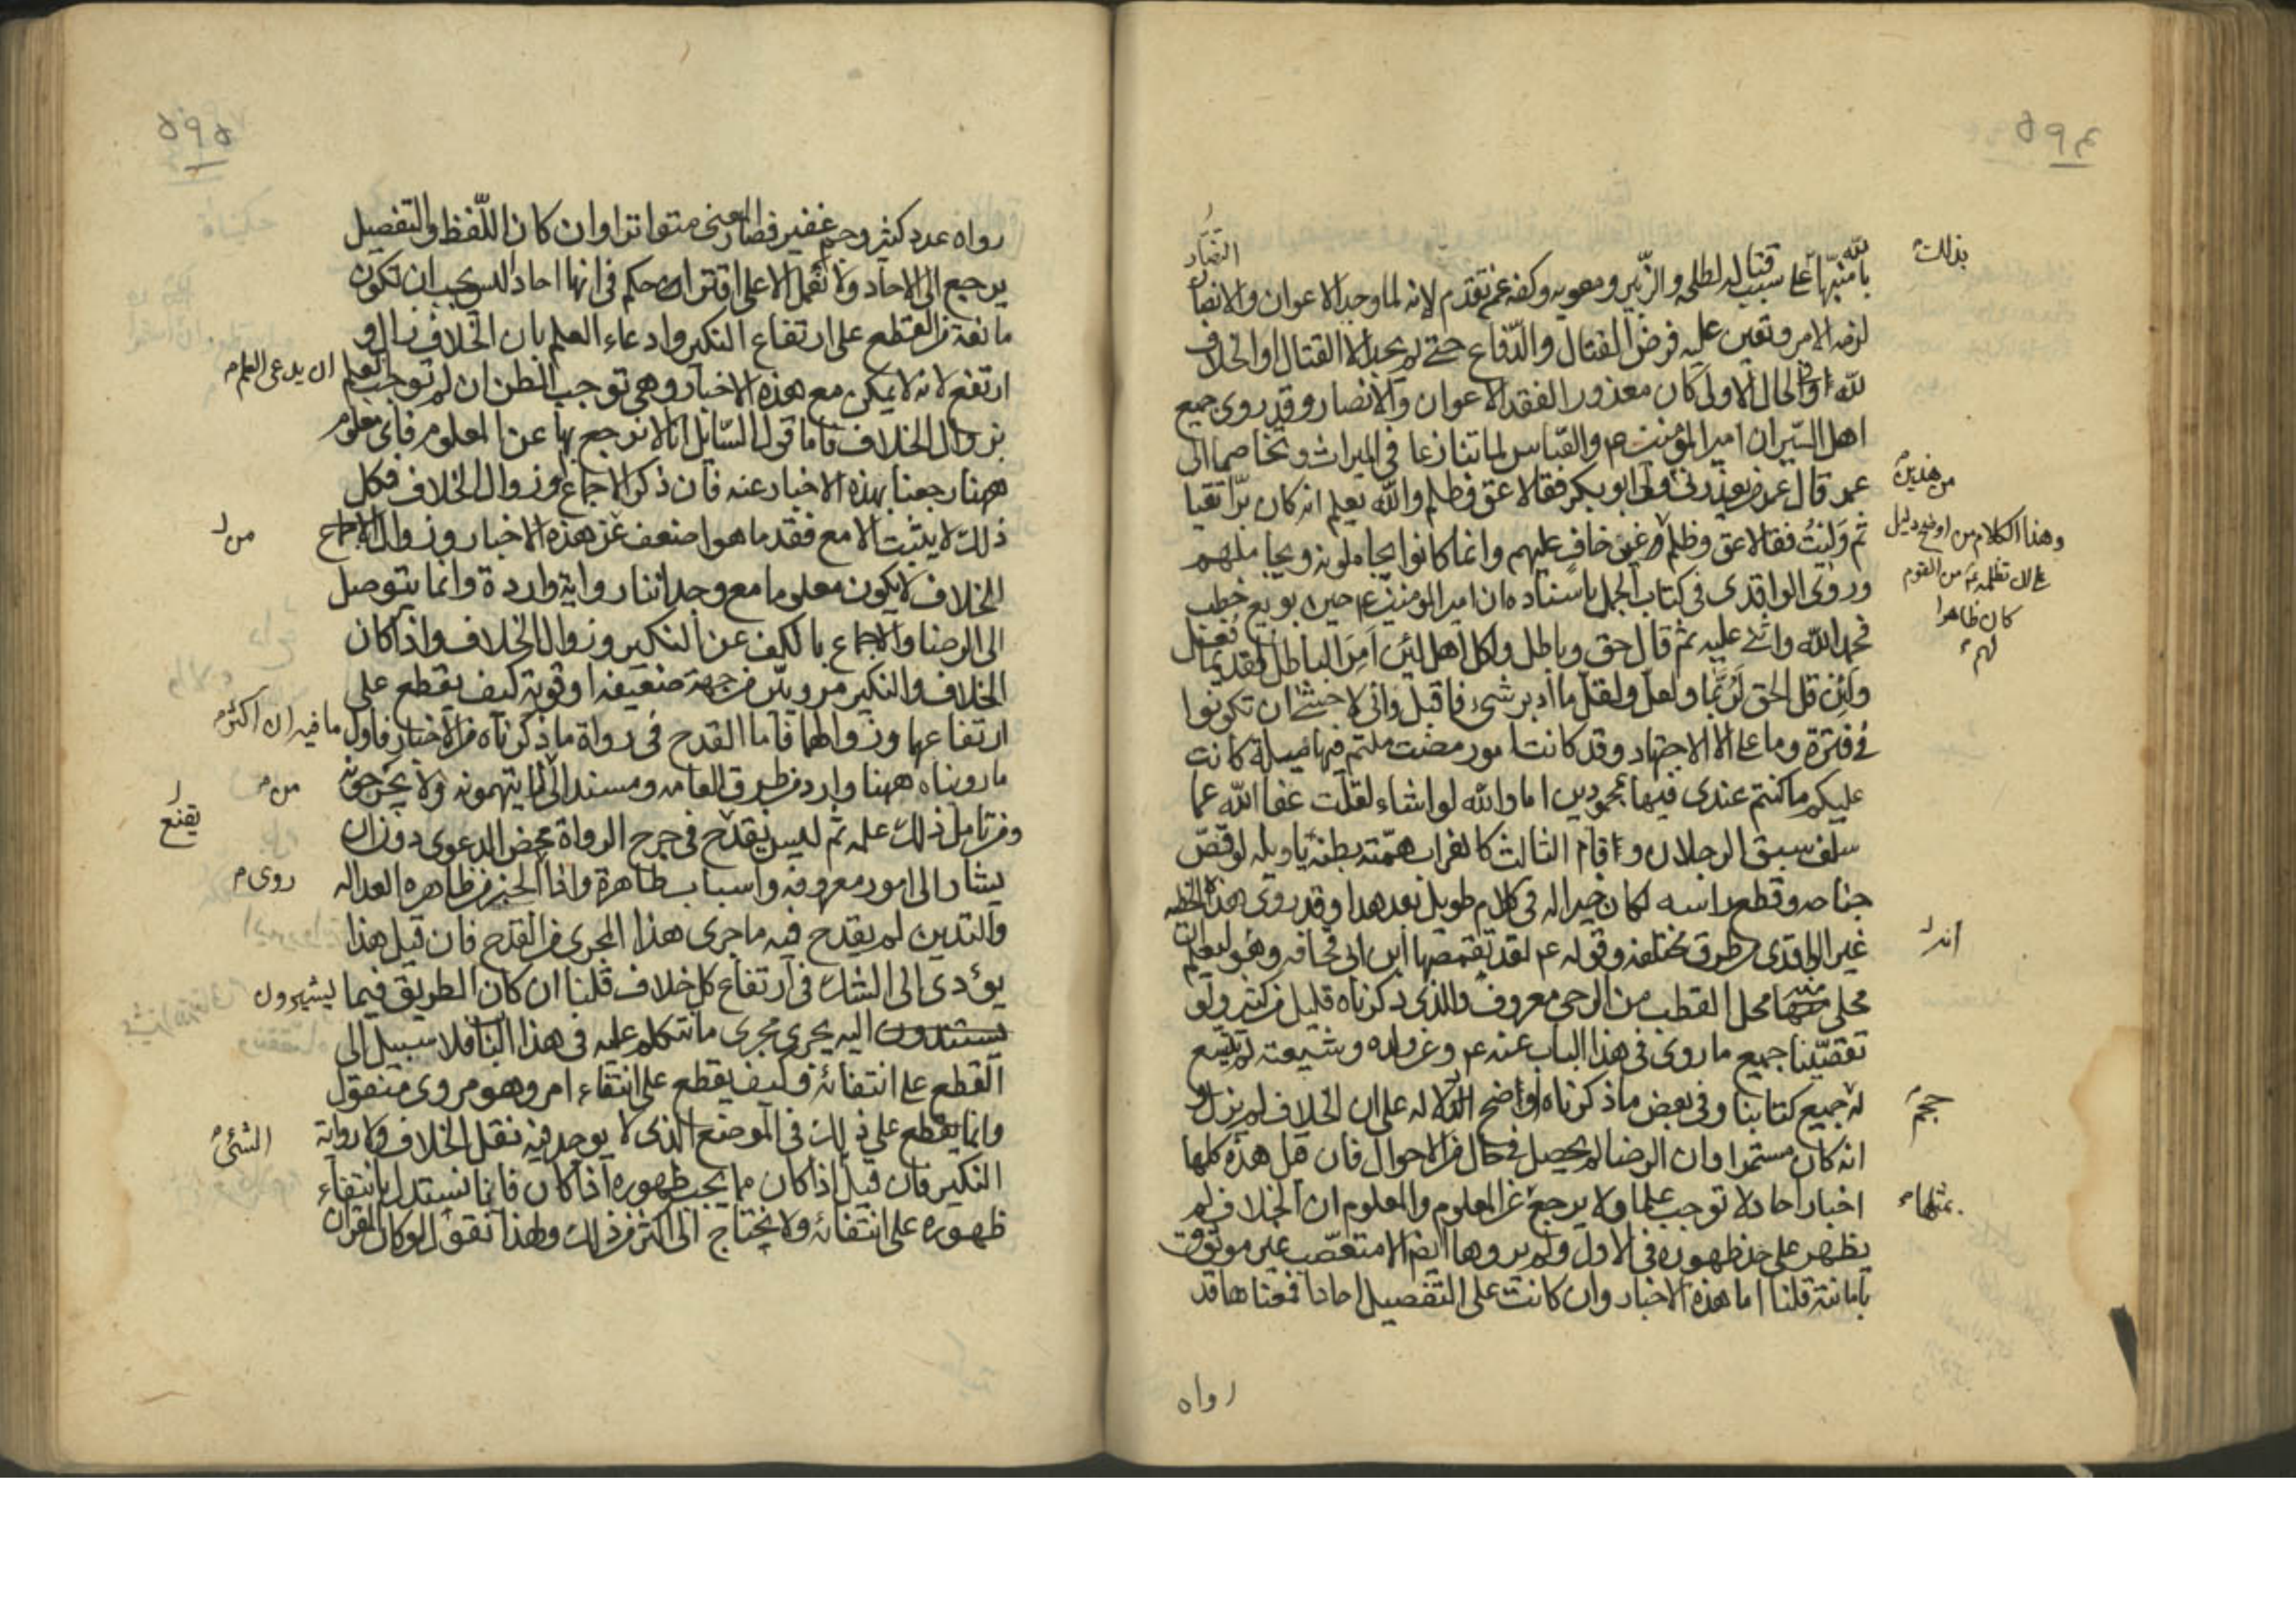 ٥٩٤
بذلك
بالله منبها على سبب قتاله لطلحه والزبير ومعويه وكفه عمن تقدم لانه لما وجد الاعوان والانصار
لزمه الامر وتعين عليه فرض القتال والدفاع حتى لم يجد الا القتال او الخلاف
لله وفي الحال الاولى كان معذورا لفقد الاعوان والانصار وقد روى جميع
اهل السير ان امير المؤمنين ع والعباس لما تنازعا في الميراث وتخاصما الى
عمر قال عمر من يعذرني ولى ابو بكر فقالا عق وظلم والله يعلم انه كان برا تقيا
من هذين
ثم وليت فقالا عق وظلم غير خاف عليهم وانما كانوا يجاملونه ويجاملهم
وهذا الكلام من اوضح دليل
على ان تظلمه ع من القوم
كان ظاهرا
لهم
وروى الواقدى فى كتاب الجمل باسناده ان امير المؤمنين ع حين بويع خطب
فحمد الله واثنى عليه ثم قال حق وباطل ولكل اهل لئن امر الباطل لقديما فعل
ولئن قل الحق لربما ولعل ولقل ما ادبر شىء فاقبل وانى لاخشى ان تكونوا
فى فترة وما على الا الاجتهاد وقد كانت امور مضت ملتم فيها ميلة كانت
عليكم ما كنتم عندى فيها بمحمودين اما والله لو اشاء لقلت عفا الله عما
سلف سبق الرجلان وقام الثالث كالغراب همته بطنه ياويله لو قص
جناحه وقطع راسه لكان خيرا له فى كلام طويل بعد هذا وقد روى هذه الخطبه
غير الواقدى من طرق مختلفه وقوله ع لقد تقمصها ابن ابى قحافه وهو ليعلم ان
انه
محلى منها محل القطب من الرحى معروف والذى ذكرناه قليل من كثير ولو
تقصينا جميع ما روى فى هذا الباب عنه ع وعن ولده وشيعته لم يتسع
له جميع كتابنا وفى بعض ما ذكرناه اوضح الدلاله على ان الخلاف لم يزل و
حجم
انه كان مستمرا وان الرضا لم يحصل فى حال من الاحوال فان قيل هذه كلها
اخبار احاد لا توجب علما ولا يرجع عن المعلوم والمعلوم ان الخلاف لم
بمثلها
يظهر على حد ظهوره فى الاول ولم يروها ايضا الا متعصب غير موثوق
بامانته قلنا اما هذه الاخبار وان كانت على التفصيل احادا فمعناها قد
رواه
٥٩٥
رواه عدد كثير وجم غفير فصار المعنى متواترا وان كان اللفظ والتفصيل
يرجع الى الاحاد ولا نعمل الا على اقتراحك حكم فى انها احاد اليس يجب ان تكون
مانعة من القطع على ارتفاع النكير وادعاء العلم بان الخلاف زال و
ارتفع لانه لا يمكن مع هذه الاخبار وهى توجب الظن ان لم توجب العلم ان يدعى العلم
بزوال الخلاف فاما قول السائل انا لا نرجع بها عن المعلوم فاى معلوم
ههنا رجعنا بهذه الاخبار عنه فان ذكر الاجماع وزوال الخلاف فكل
ذلك لا يثبت الا مع فقد ما هو اضعف من هذه الاخبار وزوال الاجماع
من
الخلاف لا يكون معلوما مع وجداننا رواية واردة وانما يتوصل
الى الرضا والاجماع بالكف عن النكير وزوال الخلاف واذا كان
الخلاف والنكير مرويين من جهة ضعيفه او قوية كيف يقطع على
ارتفاعها وزوالهما فاما القدح فى رواة ما ذكرناه من الاخبار فاول ما فيه ان اكثر
ما رويناه ههنا وارد من طرق العامه ومسند الى من لا يتهمونه ولا يجرحونه
من
ومن تامل ذلك علمه ثم ليس يقدح فى جرح الرواة بمحض الدعوى دون ان
يقنع
يشار الى امور معروفه واسباب ظاهرة واذا الخبر من ظاهره العداله
روى
والتدين لم يقدح فيه ما جرى هذا المجرى من القدح فان قيل هذا
يؤدى الى الشك فى ارتفاع كل خلاف قلنا ان كان الطريق فيما يشيرون
اليه يجرى مجرى ما نتكلم عليه فى هذا الباب فلا سبيل الى
القطع على انتفائه وكيف يقطع على انتفاء امر وهو مروى منقول
وانما يقطع على ذلك فى الموضع الذى لا يوجد فيه نقل الخلاف ولا رواية
الشئ
النكير فان قيل اذا كان مما يجب ظهوره اذا كان فانما نستدل بانتفاء
ظهوره على انتفائه ولا يحتاج الى اكثر من ذلك ولهذا نقول لو كان القران